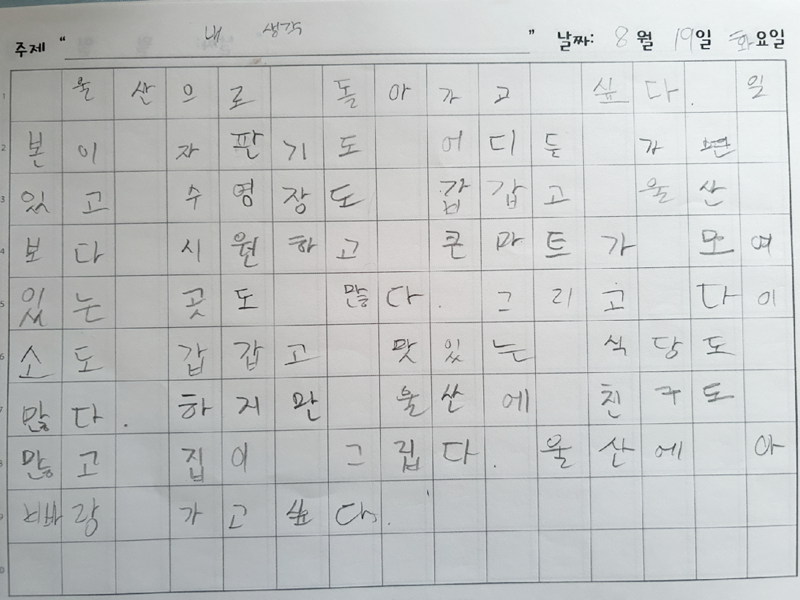 주제 " 내 생각 " 날짜: 8월 19일 화요일
울산으로 돌아가고 싶다. 일
본이 자판기도 어디든 가면
있고 수영장도 갑갑고 울산
보다 시원하고 큰마트가 모여
있는 곳도 많다. 그리고 다이
소도 갑갑고 맛있는 식당도
많다. 하지만 울산에 친구도
많고 집이 그립다. 울산에 아
빠랑 가고 싶다.